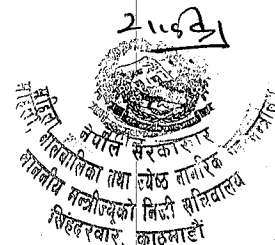 नेपाल सरकार
महिला, बालबालिका तथा ज्येष्ठ नागरिक मन्त्रालय
माननीय मन्त्रीज्यूको निजी सचिवालय
सिंहदरबार, काठमाडौं